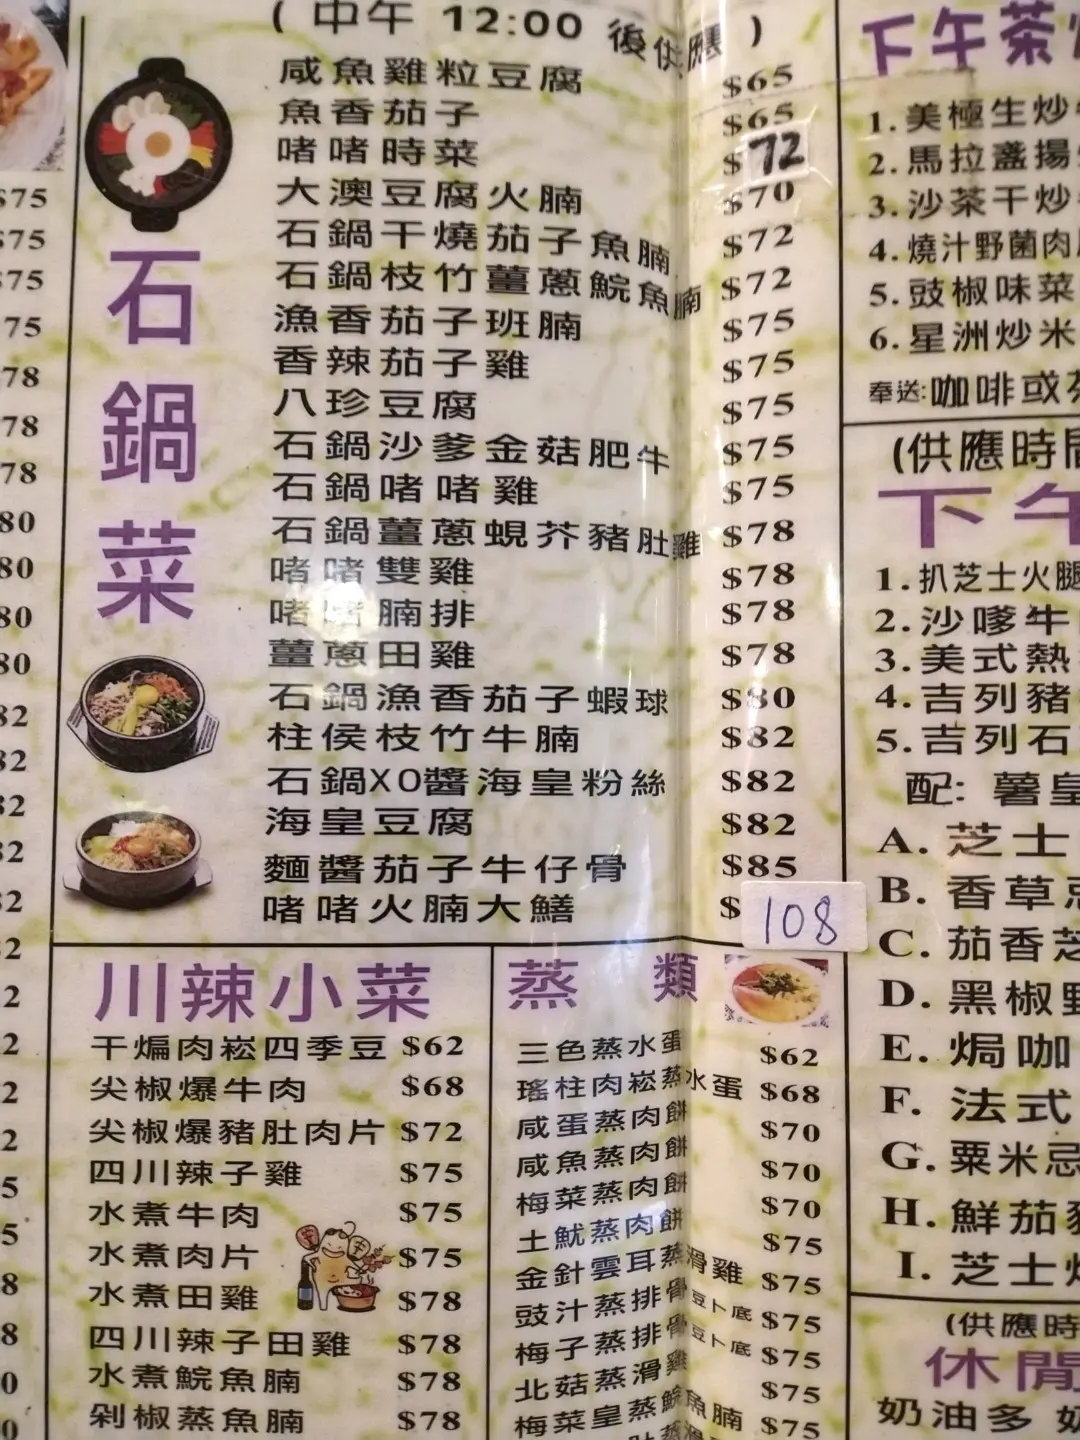 (中午 12:00 後供應)
石鍋菜
咸魚雞粒豆腐 $65
魚香茄子 $65
啫啫時菜 $72
大澳豆腐火腩 $70
石鍋干燒茄子魚腩 $72
石鍋枝竹薑蔥鯇魚腩 $72
漁香茄子班腩 $75
香辣茄子雞 $75
八珍豆腐 $75
石鍋沙爹金菇肥牛 $75
石鍋啫啫雞 $75
石鍋薑蔥蜆芥豬肚雞 $78
啫啫雙雞 $78
啫啫腩排 $78
薑蔥田雞 $78
石鍋漁香茄子蝦球 $80
柱侯枝竹牛腩 $82
石鍋XO醬海皇粉絲 $82
海皇豆腐 $82
麵醬茄子牛仔骨 $85
啫啫火腩大鱔 $108
川辣小菜
干煸肉崧四季豆 $62
尖椒爆牛肉 $68
尖椒爆豬肚肉片 $72
四川辣子雞 $75
水煮牛肉 $75
水煮肉片 $75
水煮田雞 $78
四川辣子田雞 $78
水煮鯇魚腩 $78
剁椒蒸魚腩 $78
蒸類
三色蒸水蛋 $62
瑤柱肉崧蒸水蛋 $68
咸蛋蒸肉餅 $70
咸魚蒸肉餅 $70
梅菜蒸肉餅 $70
土魷蒸肉餅 $75
金針雲耳蒸滑雞 $75
豉汁蒸排骨豆卜底 $75
梅子蒸排骨豆卜底 $75
北菇蒸滑雞 $75
梅菜皇蒸鯇魚腩 $75
下午茶
1.美極生炒
2.馬拉盞揚
3.沙茶干炒
4.燒汁野菌肉
5.豉椒味菜
6.星洲炒米
奉送:咖啡或茶
(供應時間
下午
1.扒芝士火腿
2.沙嗲牛
3.美式熱
4.吉列豬
5.吉列石
配: 薯皇
A.芝士
B.香草忌
C.茄香芝
D.黑椒野
E.焗咖
F.法式
G.粟米忌
H.鮮茄豬
I.芝士
(供應時
休閒
奶油多 奶
$75
$75
$75
75
78
78
78
80
80
80
80
82
82
82
82
82